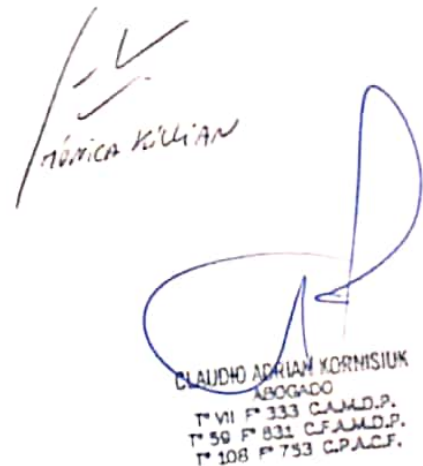 MÓNICA KILLIAN
CLAUDIO ADRIAN KORNISIUK
ABOGADO
Tº VII Fº 333 C.A.M.D.P.
Tº 59 Fº 831 C.F.A.M.D.P.
Tº 108 Fº 753 C.P.A.C.F.